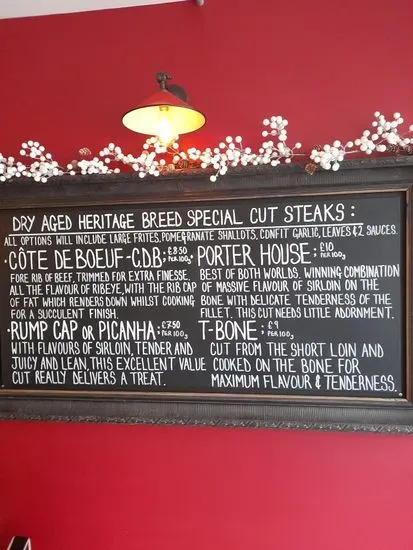 DRY AGED HERITAGE BREED SPECIAL CUT STEAKS:
ALL OPTIONS WILL INCLUDE LARGE FRITES, POMEGRANATE SHALLOTS, CONFIT GARLIC, LEAVES & 2 SAUCES.
·CÔTE DE BOEUF-C.D.B; £8.50 PER 100g
FORE RIB OF BEEF, TRIMMED FOR EXTRA FINESSE.
ALL THE FLAVOUR OF RIBEYE, WITH THE RIB CAP
OF FAT WHICH RENDERS DOWN WHILST COOKING
FOR A SUCCULENT FINISH.
·RUMP CAP OR PICANHA; £7.50 PER 100g
WITH FLAVOURS OF SIRLOIN, TENDER AND
JUICY AND LEAN, THIS EXCELLENT VALUE
CUT REALLY DELIVERS A TREAT.
·PORTER HOUSE; £10 PER 100g
BEST OF BOTH WORLDS. WINNING COMBINATION
OF MASSIVE FLAVOUR OF SIRLOIN ON THE
BONE WITH DELICATE TENDERNESS OF THE
FILLET. THIS CUT NEEDS LITTLE ADORNMENT.
T-BONE; £9 PER 100g
CUT FROM THE SHORT LOIN AND
COOKED ON THE BONE FOR
MAXIMUM FLAVOUR & TENDERNESS.